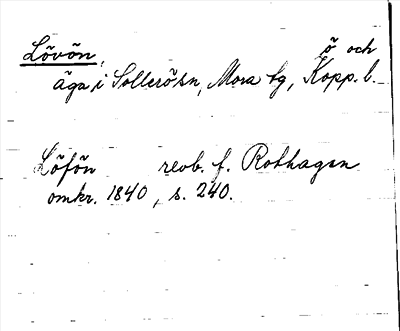 Lövön, ö och
äga i Sollerösn, Mora tg, Kopp. l.
Löfön reob. f. Rothagen
omkr. 1840, s. 240.